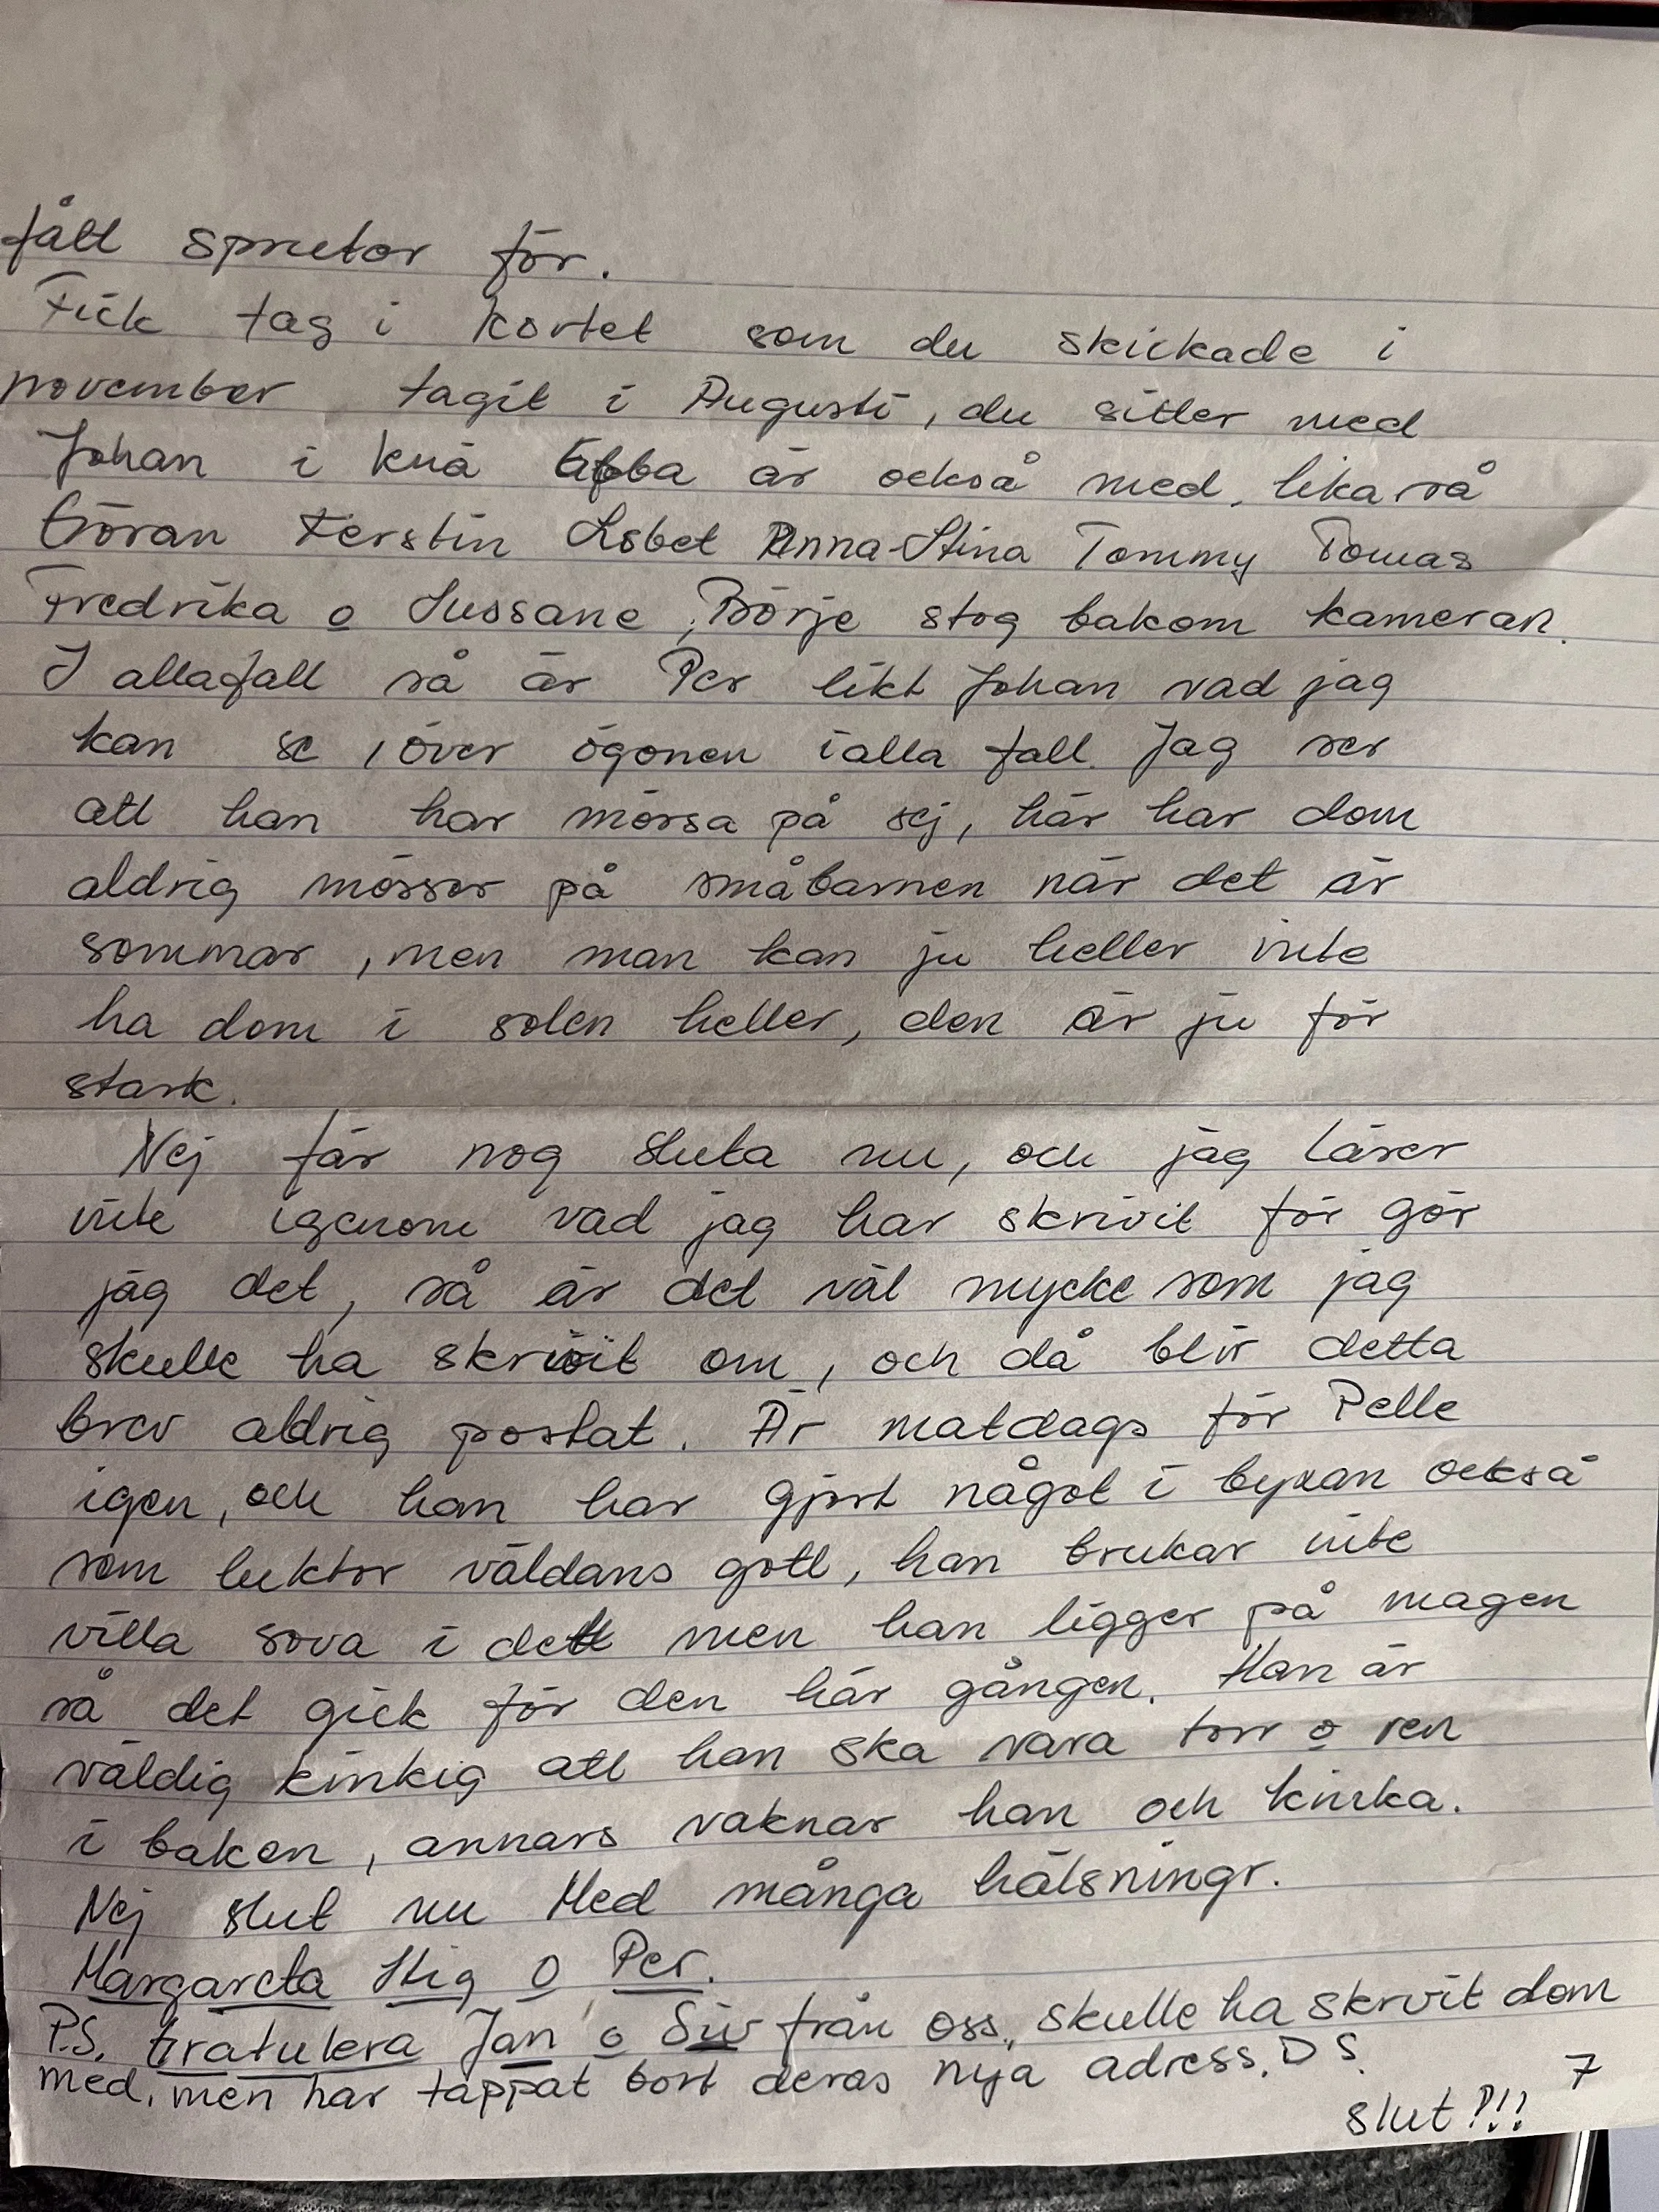 fått sprutor för.
Fick tag i kortet som du skickade i
november tagit i Augusti, du sitter med
Johan i knä Ebba är också med, lika så
Göran Kerstin Lisbet Anna-Stina Tommy Tomas
Fredrika o Sussane, Börje stog bakom kameran.
I allafall så är Per likt Johan vad jag
kan se, över ögonen i alla fall. Jag ser
att han har mössa på sej, här har dom
aldrig mössor på småbarnen när det är
sommar, men man kan ju heller inte
ha dom i solen heller, den är ju för
stark.
Nej får nog sluta nu, och jag läser
inte igenom vad jag har skrivit för gör
jag det, så är det väl mycke som jag
skulle ha skrivit om, och då blir detta
brev aldrig postat. Är matdags för Pelle
igen, och han har gjort något i byxan också
som luktor väldans gott, han brukar inte
villa sova i det men han ligger på magen
så det gick för den här gången. Han är
väldig kinkig att han ska vara torr o ren
i baken, annars vaknar han och kinka.
Nej slut nu Med många hälsningr.
Margareta Stig o Per.
P.S. Gratulera Jan o Siv från oss, skulle ha skrivit dom
med, men har tappat bort deras nya adress. DS.
7
slut?!!!